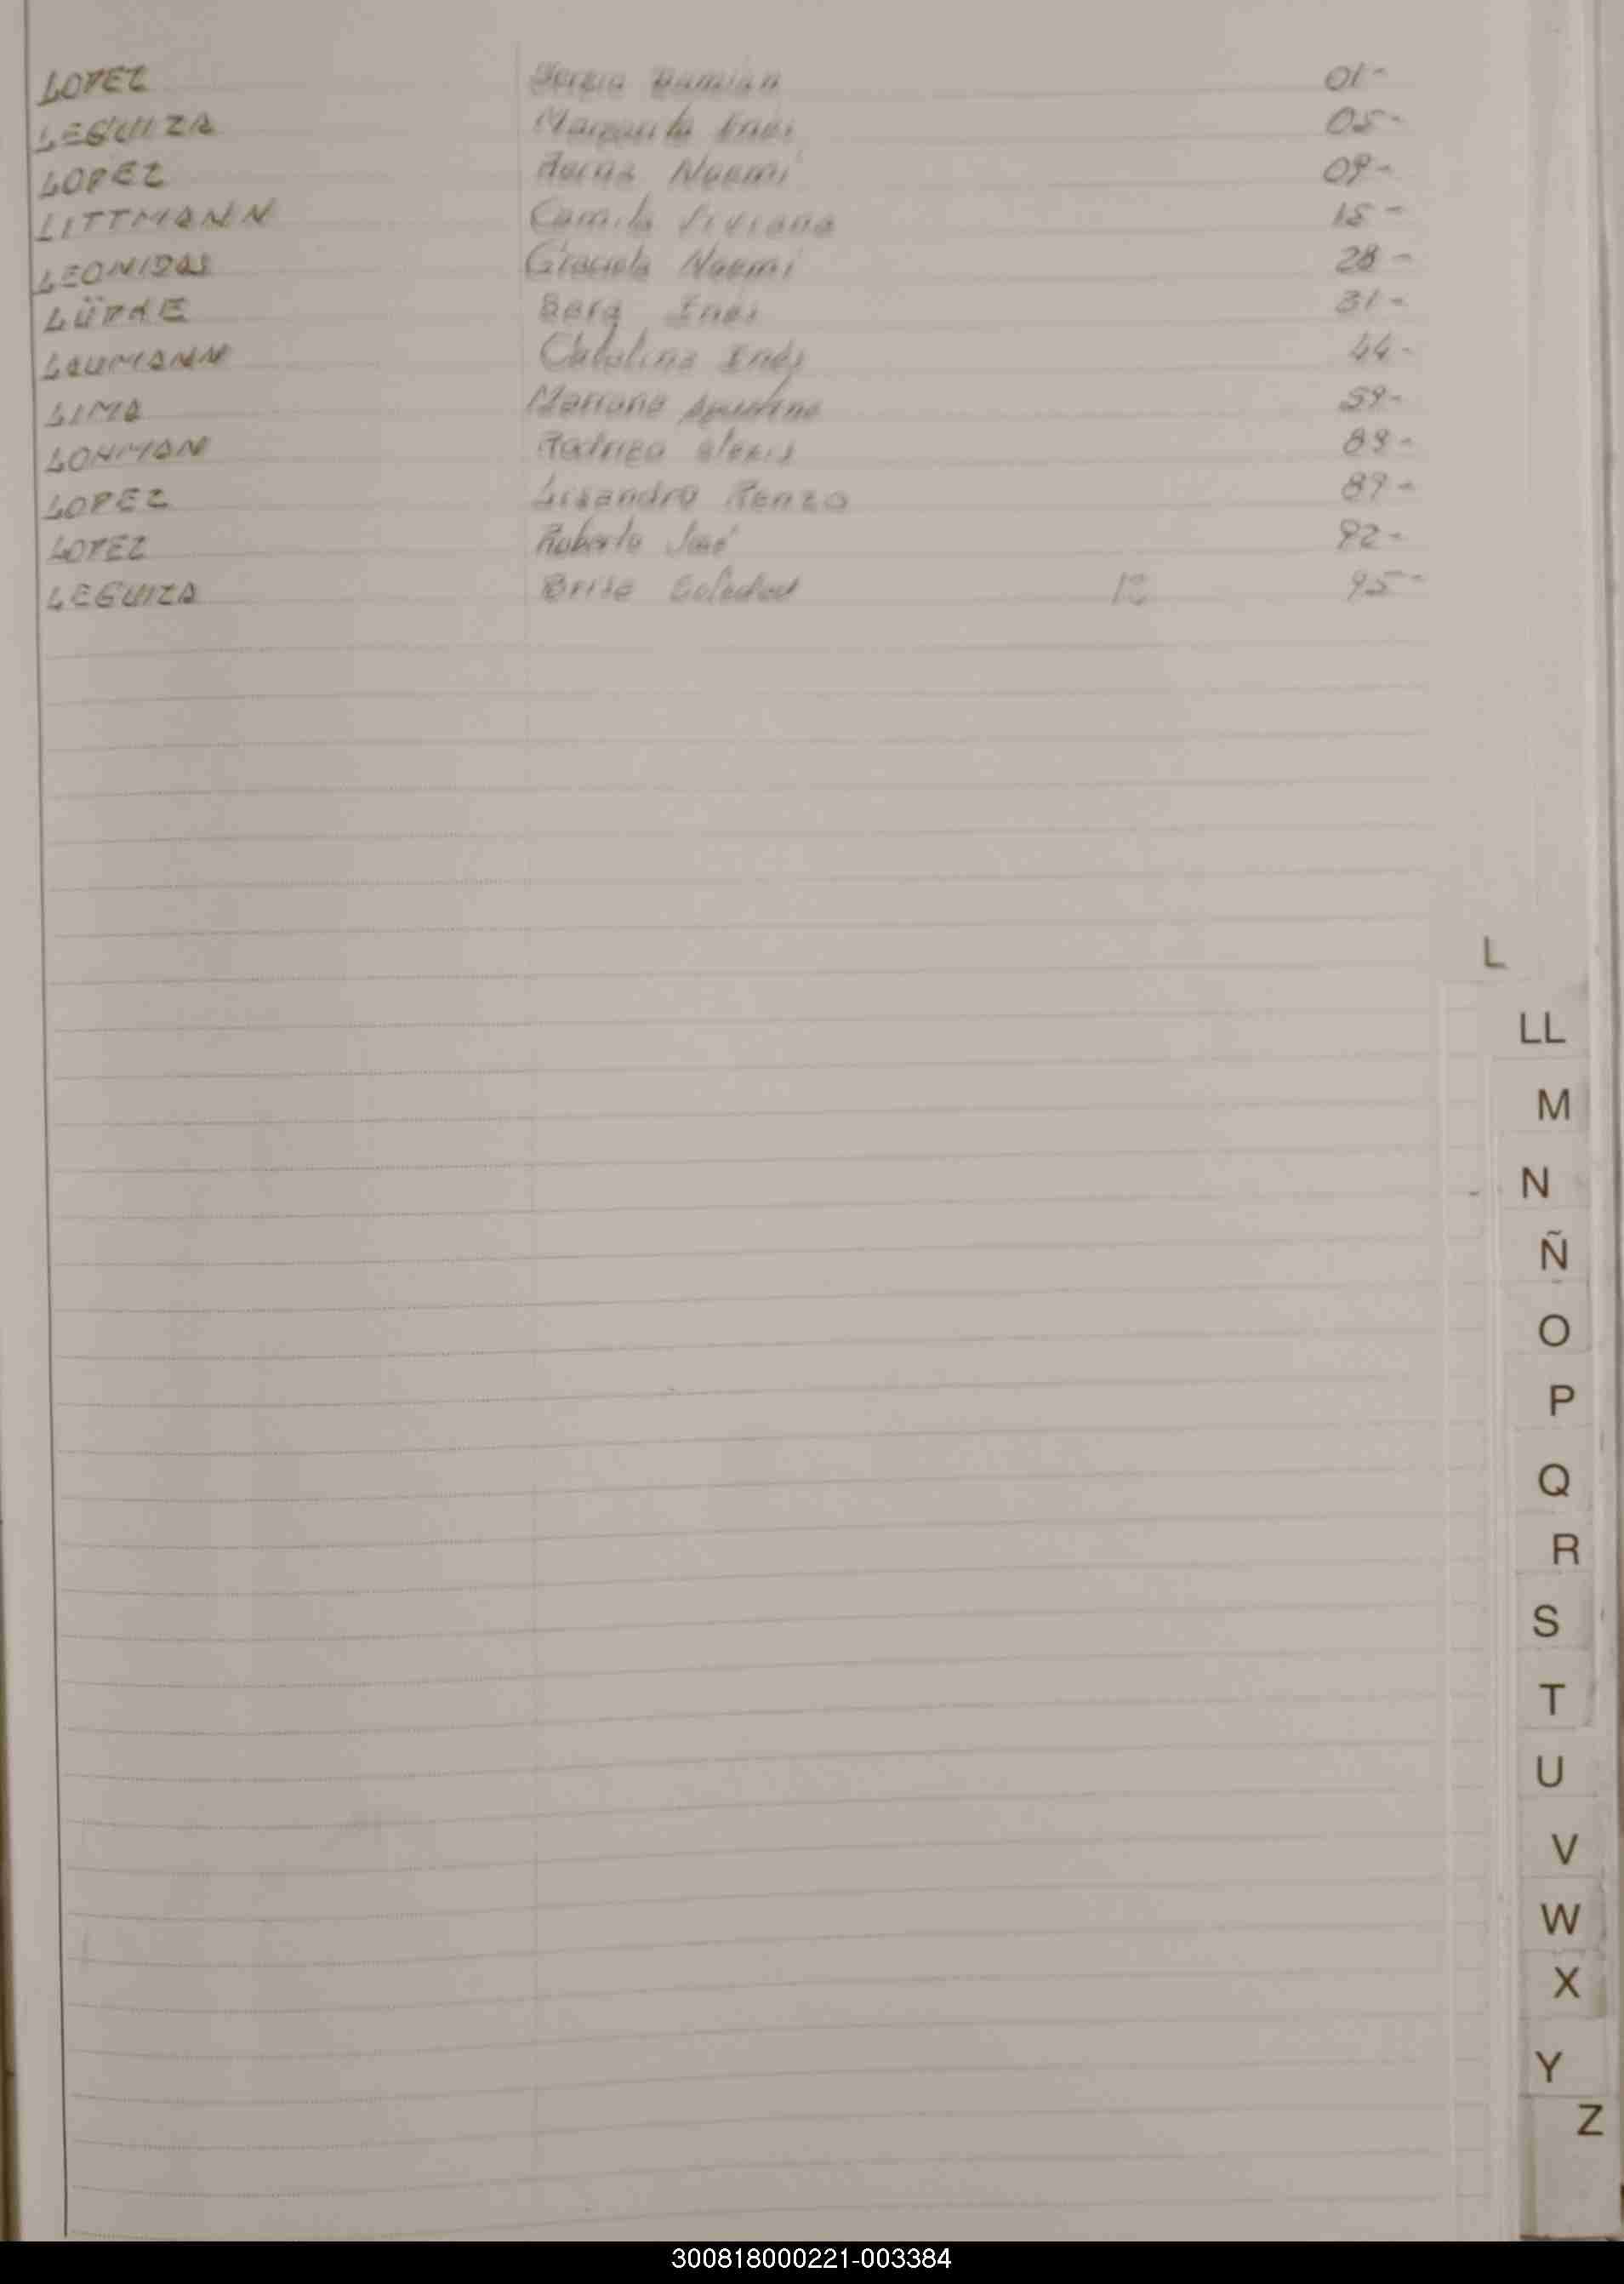 LOPEZ Sergio Damian 01-
LEGUIZA Margarita Inés 05-
LOPEZ Noemi 09-
LITTMANN Camila Viviana 15-
LEONIDAS Graciela Noemi 28-
LÜDKE Sara Inés 31-
LAUMANN Catalina Inés 44-
LIMA Mariana Agustina 59-
LOHMAN Rodrigo Alexis 88-
LOPEZ Lisandro Renzo 89-
LOPEZ Roberto José 92-
LEGUIZA Brisa Soledad 12 95-
L
LL
M
N
Ñ
O
P
Q
R
S
T
U
V
W
X
Y
Z
300818000221-003384